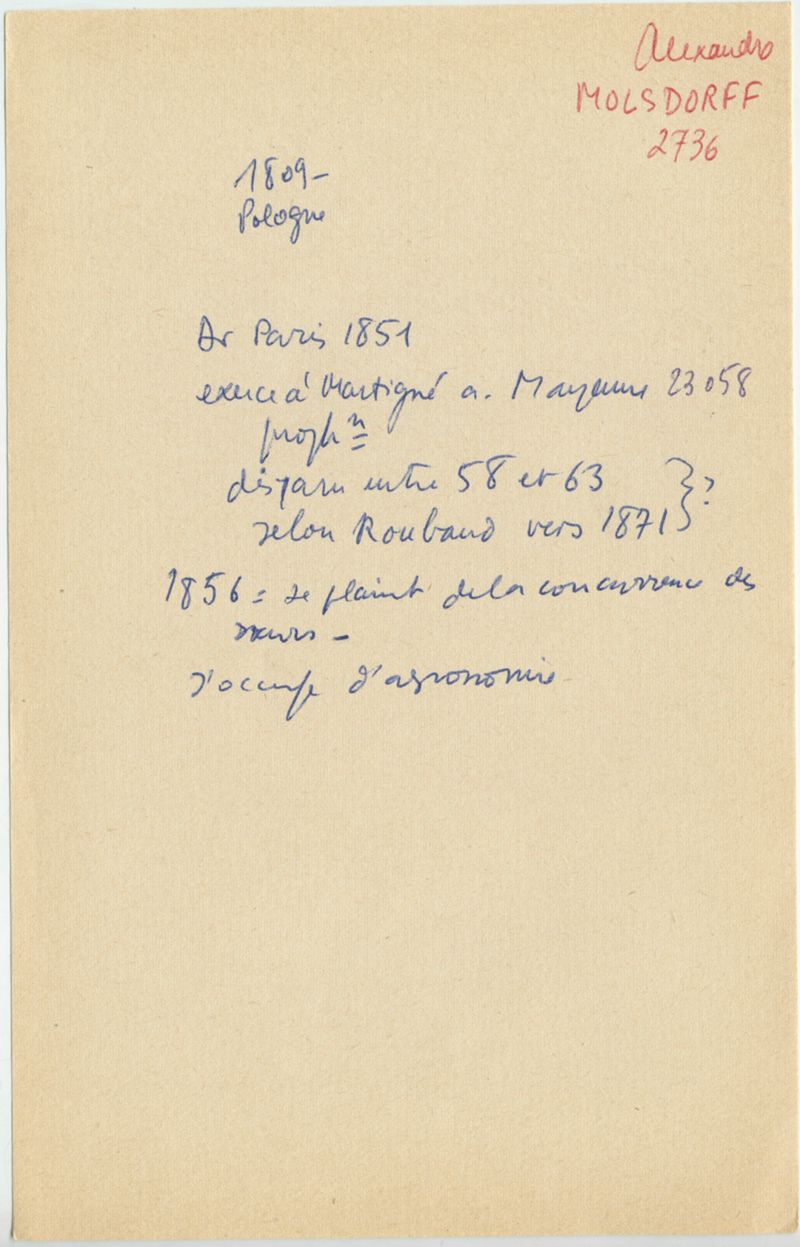 Alexandre
MOLSDORFF
2736
1809 -
Pologne
Dr Paris 1851
exerce à Martigné a. Mayenne
disparu entre 58 et 63 } ?
selon Roubaud vers 1871
1856 = se plaint de la concurrence des
sœurs -
s'occupe d'agronomie